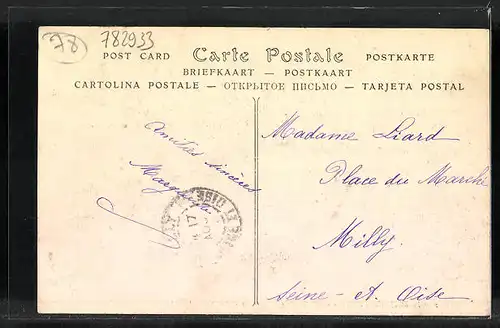 78
782933
POST CARD Carte Postale POSTKARTE
BRIEFKAART — POSTKAART
CARTOLINA POSTALE — ОТКРЫТОЕ ПИСЬМО — TARJETA POSTAL
Amitiés sincères
Marguerite
Madame Liard
Place du Marché
Milly
Seine-et-Oise
17